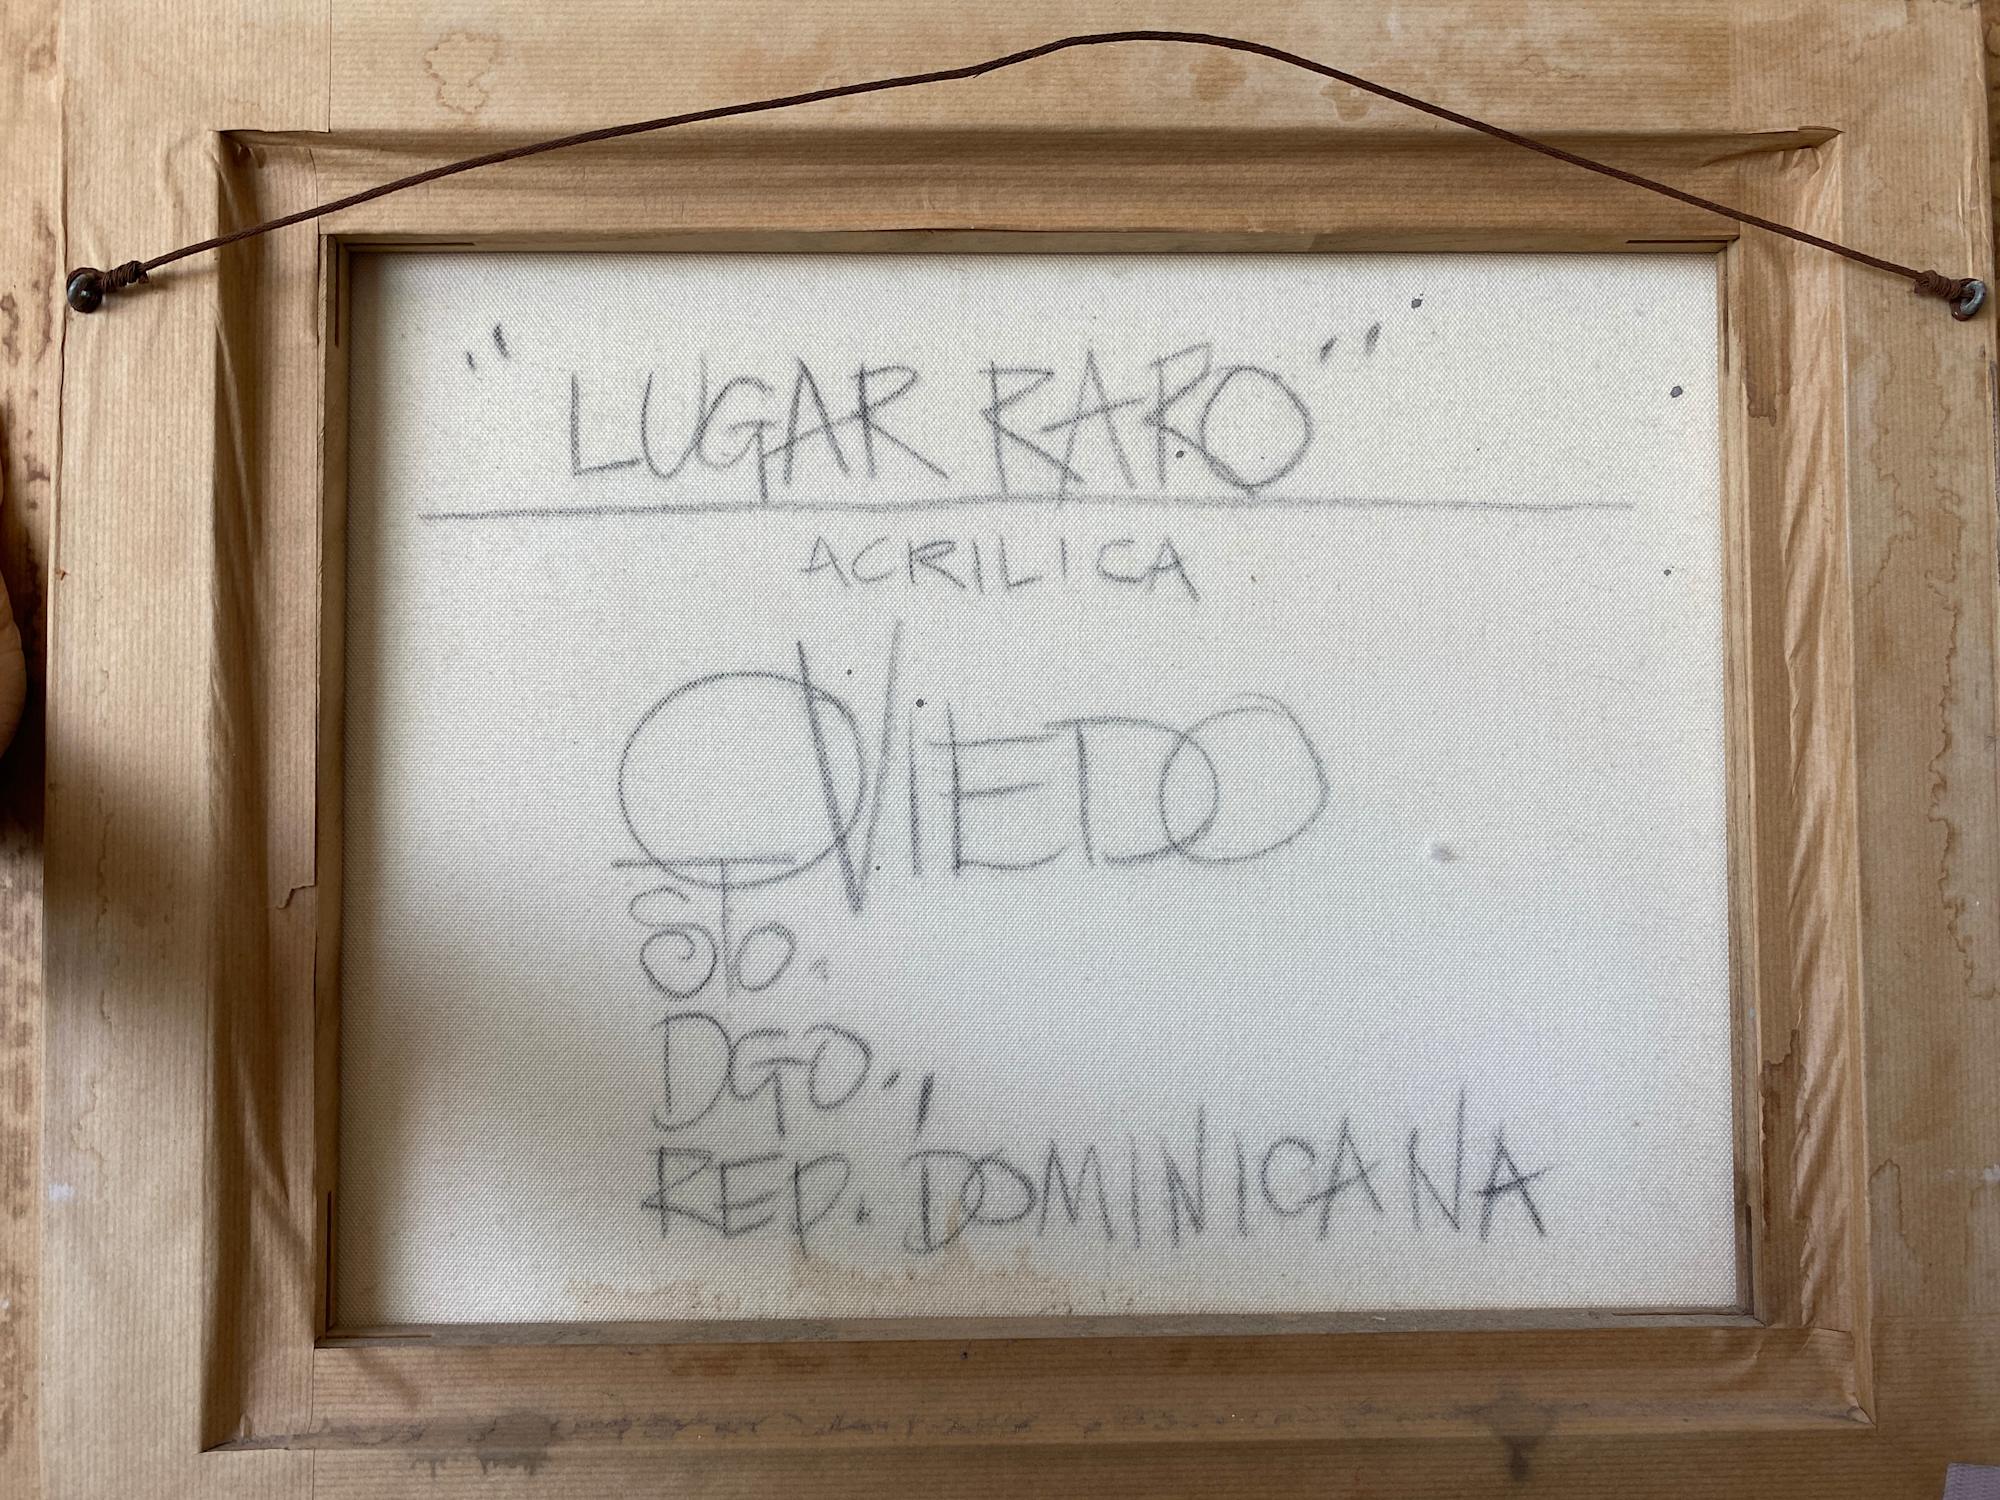 "LUGAR RARO"
ACRILICA
OVIEDO
STO.
DGO.,
REP. DOMINICANA